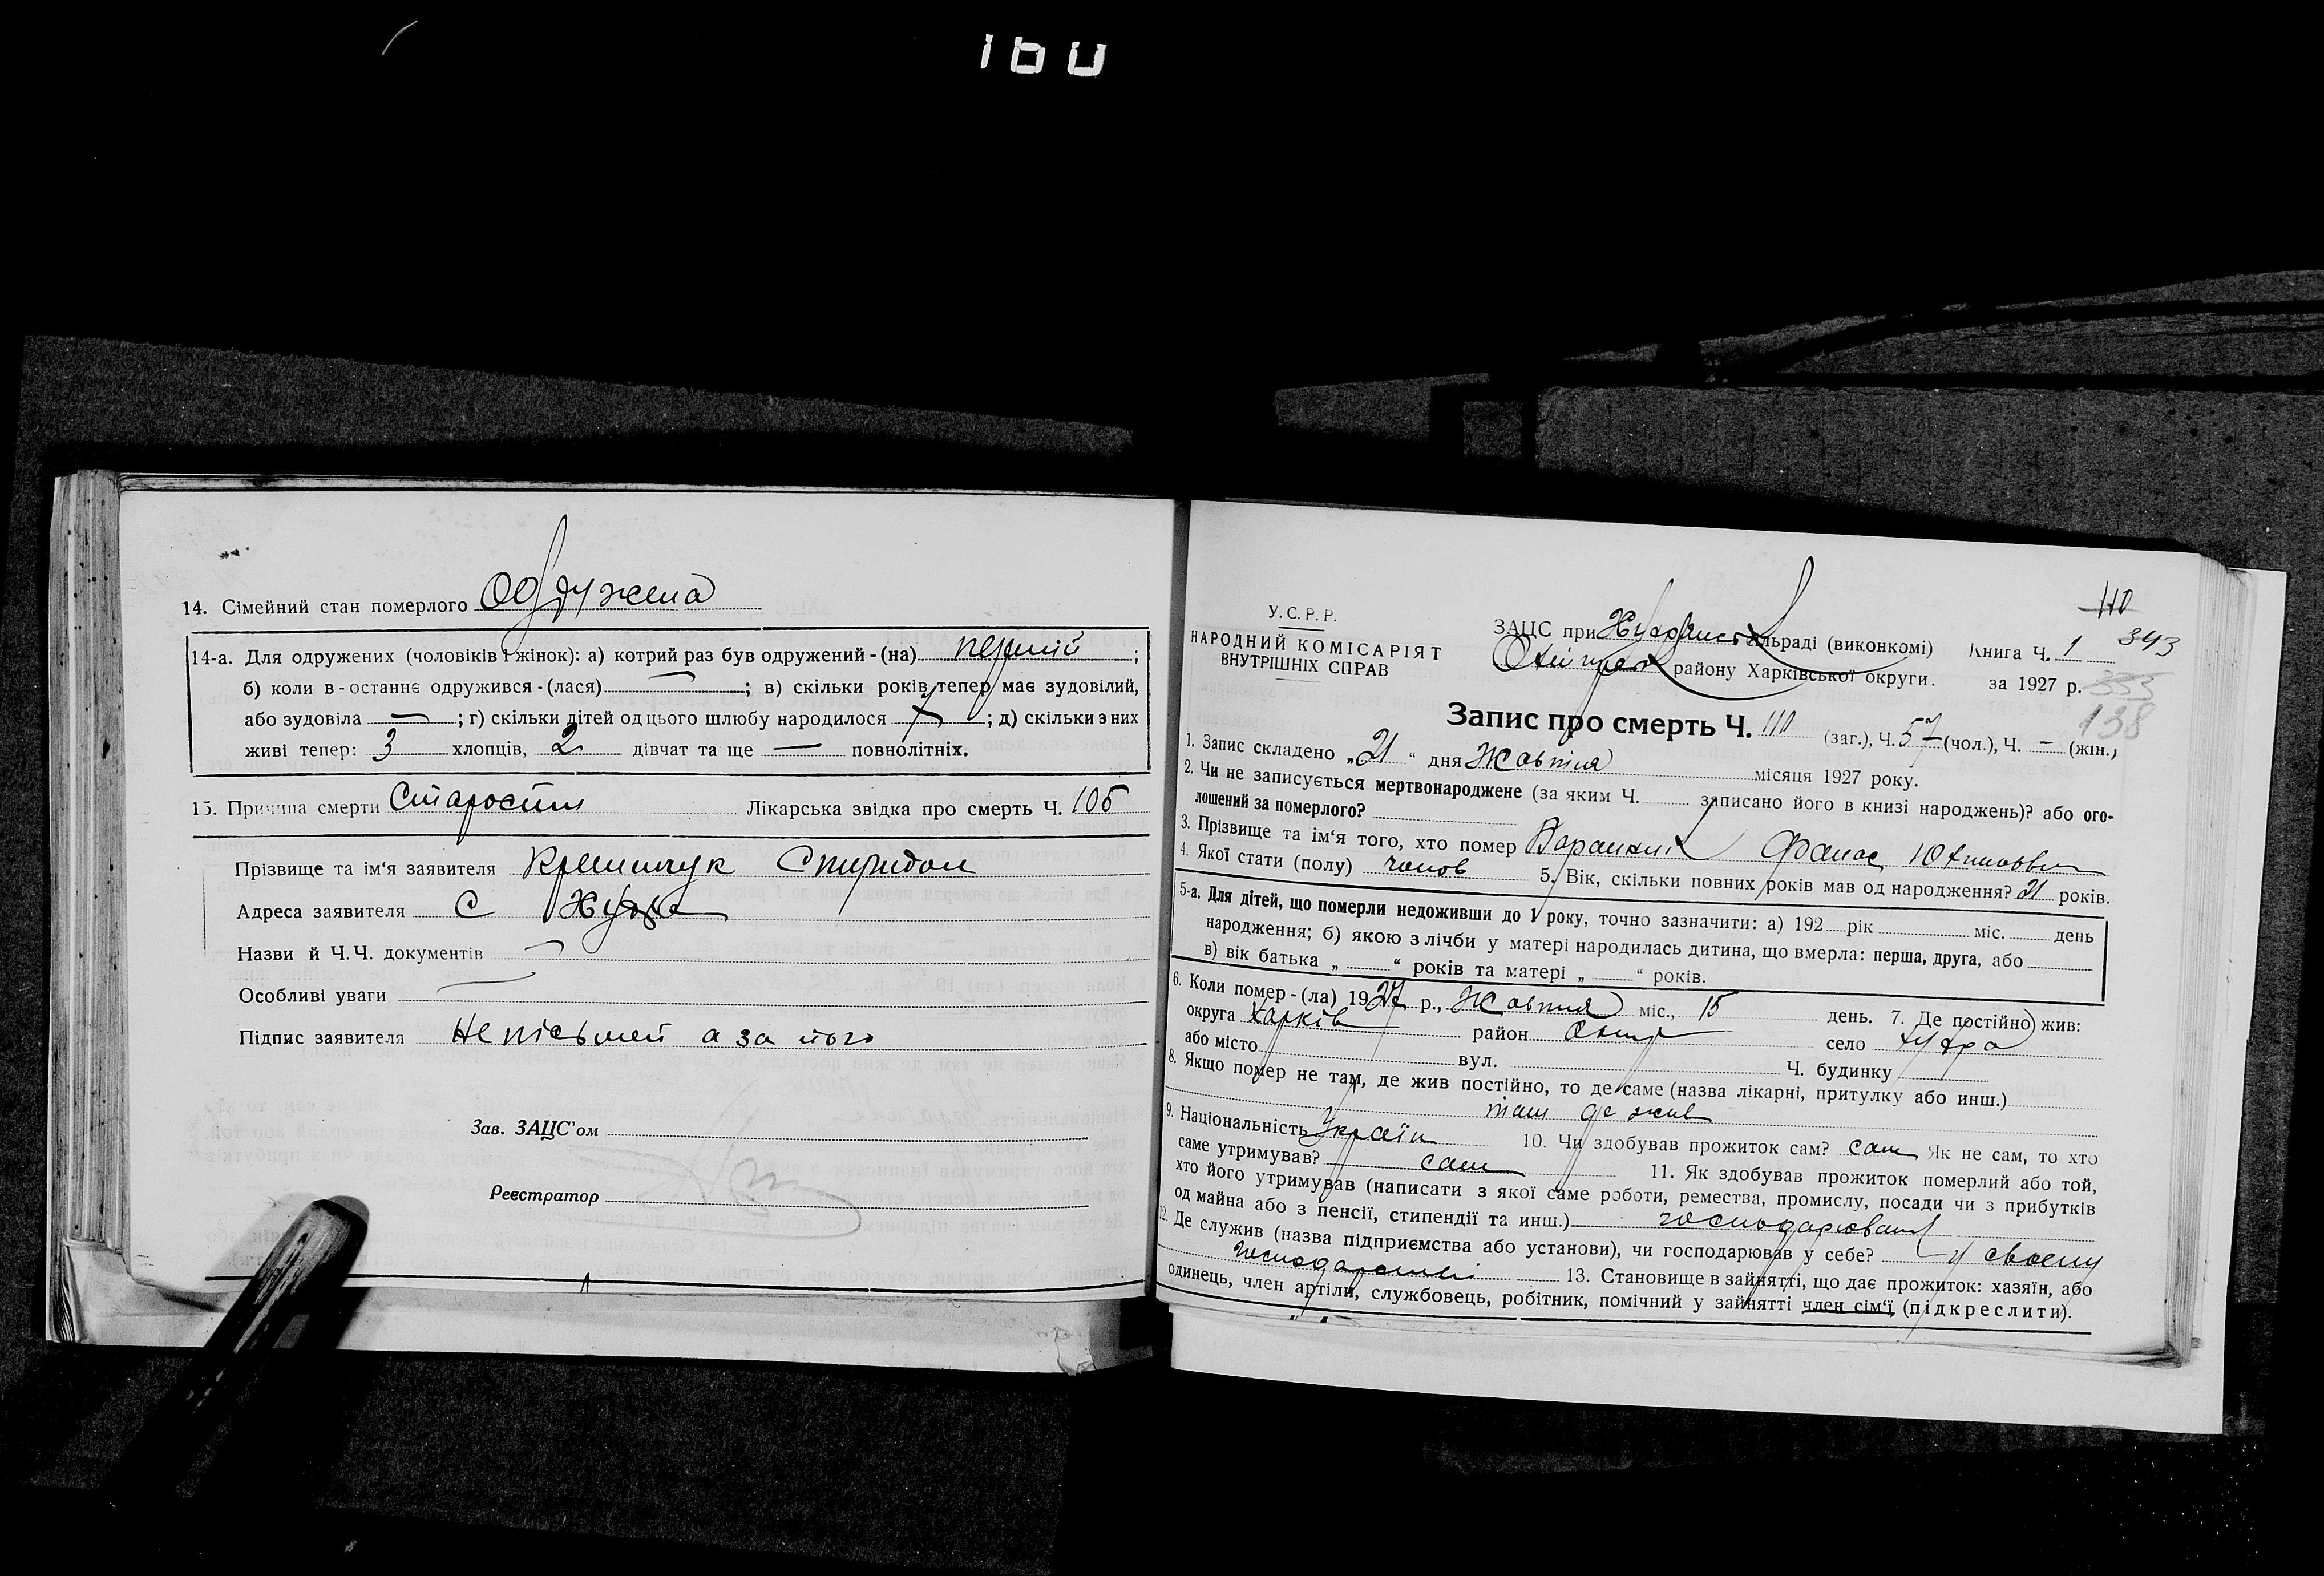 160
14. Сімейний стан померлого Одружена
14-а. Для одружених (чоловіків і жінок): а) котрий раз був одружений-(на) перший ;
б) коли в-останнє одружився-(лася) — ; в) скільки років тепер має зудовілий,
або зудовіла — ; г) скільки дітей од цього шлюбу народилося 7 ; д) скільки з них
живі тепер: 3 хлопців, 2 дівчат та ще — повнолітніх.
15. Причина смерти Старости Лікарська звідка про смерть Ч. 105
Прізвище та ім'я заявителя Спиридон
Адреса заявителя С Худра
Назви й Ч.Ч. документів —
Особливі уваги —
Підпис заявителя Не пісьмен а за його
Зав. ЗАЦС'ом
Реєстратор
110
У.С.Р.Р.
НАРОДНИЙ КОМІСАРІЯТ
ВНУТРІШНІХ СПРАВ
ЗАЦС при сільраді (виконкомі) Книга Ч. 1 343
району Харківської округи. за 1927 р. 333
138
Запис про смерть Ч. 110 (заг.), Ч. 57 (чол.), Ч. - (жін.)
1. Запис складено „21“ дня Жовтня місяця 1927 року.
2. Чи не записується мертвонароджене (за яким Ч. записано його в книзі народжень)? або ого-
лошений за померлого?
3. Прізвище та ім'я того, хто помер Фанас
4. Якої стати (полу) чолов 5. Вік, скільки повних років мав од народження? 21 років.
5-а. Для дітей, що померли недоживши до 1 року, точно зазначити: а) 192 рік міс. день
народження; б) якою з лічби у матері народилась дитина, що вмерла: перша, друга, або
в) вік батька „ “ років та матері „ “ років.
6. Коли помер-(ла) 1927 р., Жовтня міс., 15 день. 7. Де постійно жив:
округа Харків район село Худра
або місто вул. Ч. будинку
8. Якщо помер не там, де жив постійно, то де саме (назва лікарні, притулку або инш.)
там де жив
9. Національність Україн 10. Чи здобував прожиток сам? сам Як не сам, то хто
саме утримував? сам 11. Як здобував прожиток померлий або той,
хто його утримував (написати з якої саме роботи, ремества, промислу, посади чи з прибутків
од майна або з пенсії, стипендії та инш.) господарював
12. Де служив (назва підприємства або установи), чи господарював у себе? у своєму
господарстві 13. Становище в зайнятті, що дає прожиток: хазяїн, або
одинець, член артіли, службовець, робітник, помічний у зайнятті член сім'ї (підкреслити).